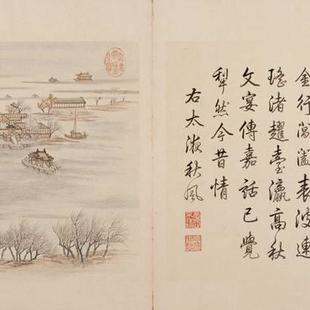 金行閶闔表波連
瑤渚趯臺瀛高秋
文宴傳嘉話已覺
犁然今昔情
右太液秋風